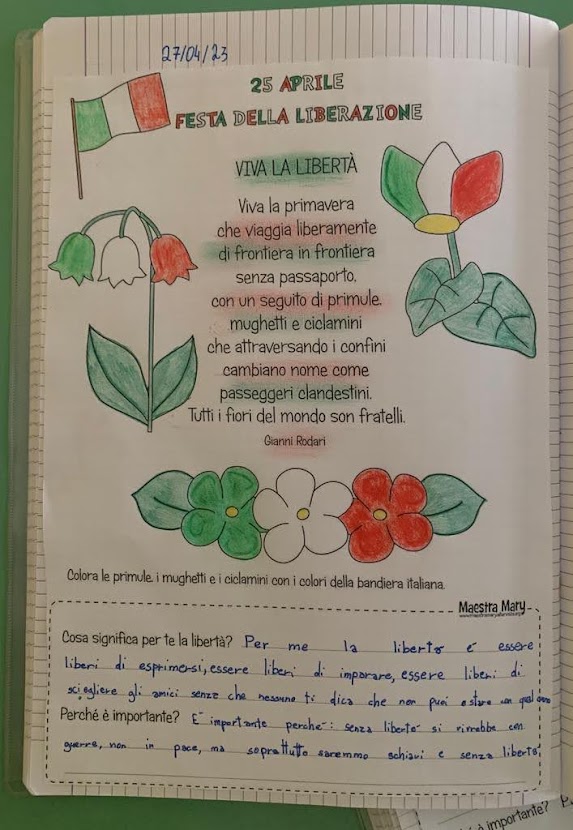 27/04/23
25 APRILE
FESTA DELLA LIBERAZIONE
VIVA LA LIBERTÀ
Viva la primavera
che viaggia liberamente
di frontiera in frontiera
senza passaporto,
con un seguito di primule,
mughetti e ciclamini
che attraversando i confini
cambiano nome come
passeggeri clandestini.
Tutti i fiori del mondo son fratelli.
Gianni Rodari
Colora le primule, i mughetti e i ciclamini con i colori della bandiera italiana.
Maestra Mary
Cosa significa per te la libertà? Per me la libertà è essere
liberi di esprimersi, essere liberi di imparare, essere liberi di
scegliere gli amici senza che nessuno ti dica che non puoi stare con
Perché è importante? È importante perché: senza libertà si vivrebbe con
guerra, non in pace, ma soprattutto saremmo schiavi e senza libertà.
è importante?